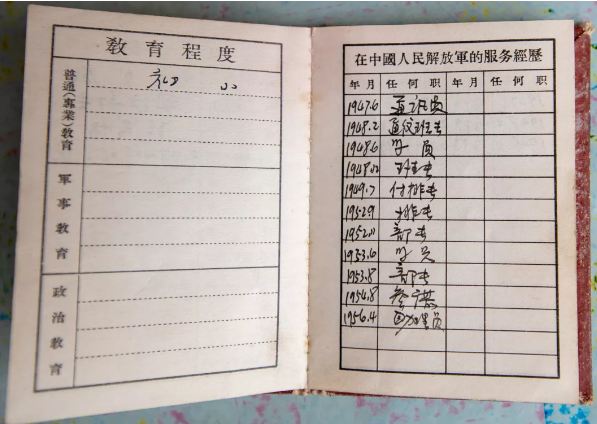 教育程度
普通(專業)教育
初中
軍事教育
政治教育
在中國人民解放軍的服务經歷
年月 任何职 年月 任何职
1947.6 通讯员
1948.2 通讯班长
1948.6 学员
1948.12 班长
1949.7 付排长
1952.9 排长
1952.11 部长
1953.6 学员
1953.8 部长
1954.8 参谋
1956.4 助理员